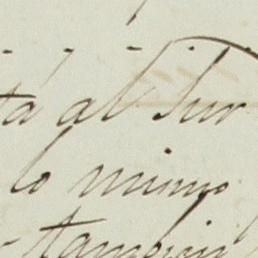 al Sur
lo mismo
tambien